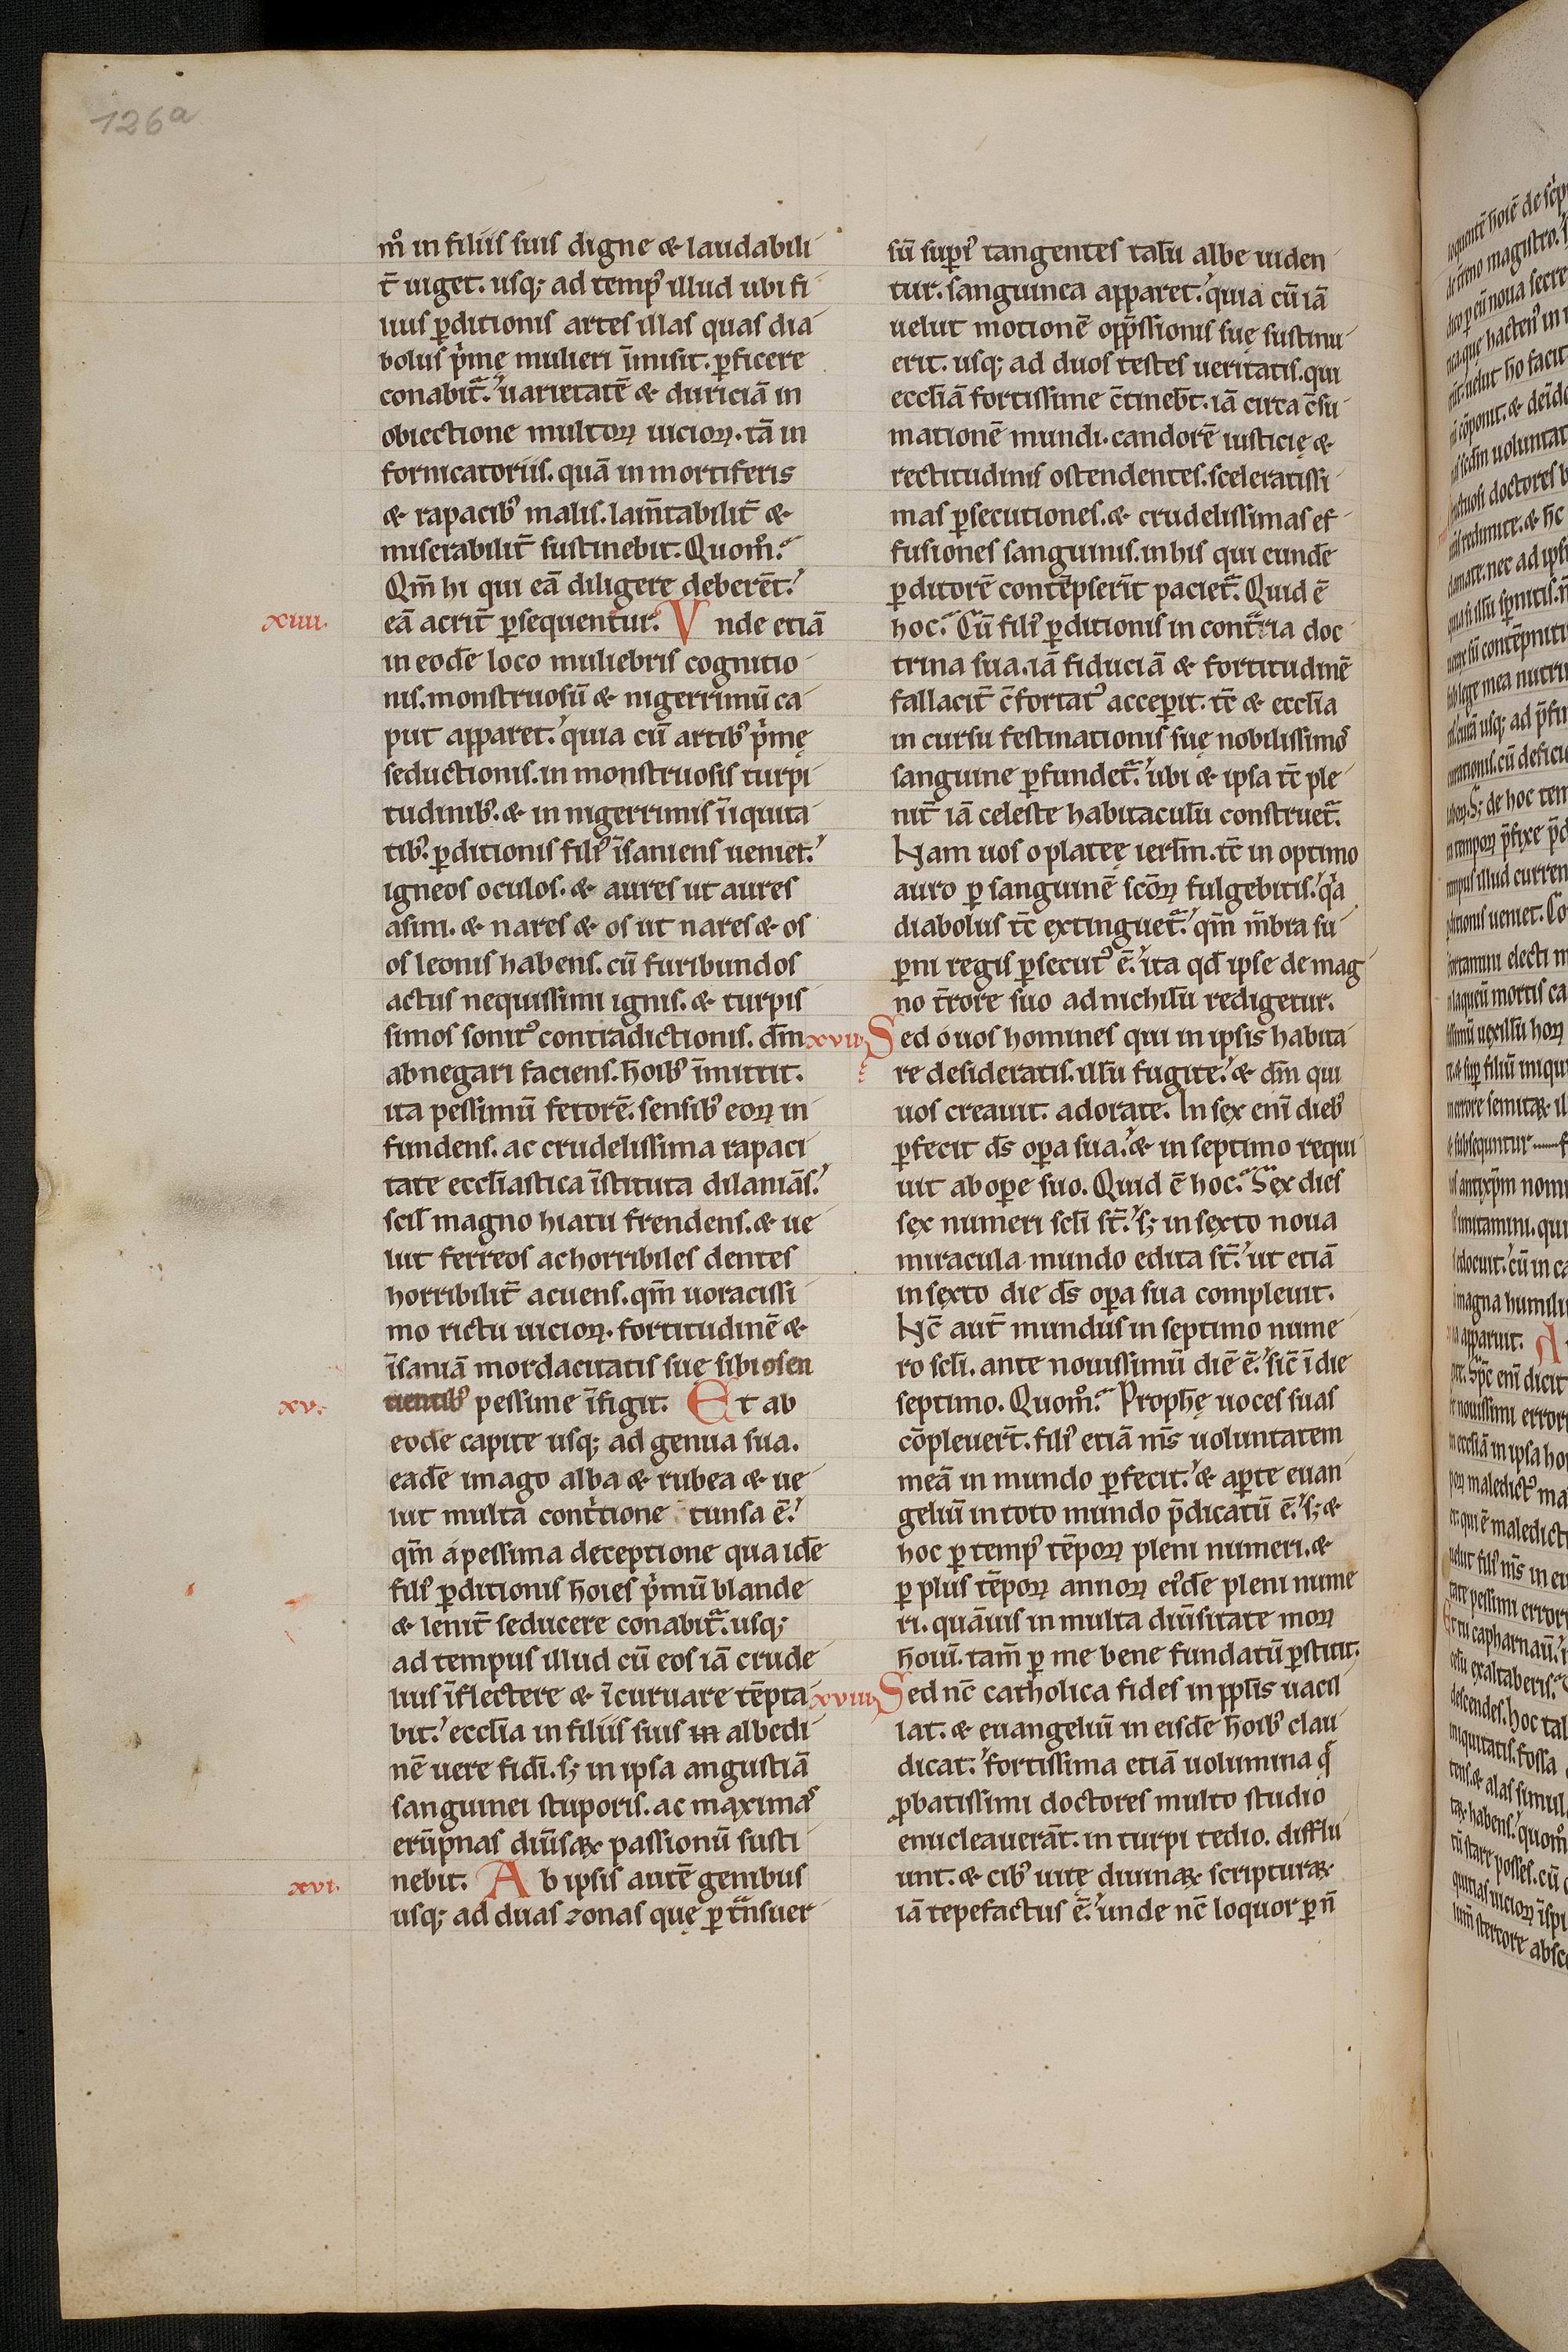 126a
mͦ in filiis suis digne & laudabili
t̄ uiget. usq; ad temp᷒ illud ubi fi
lius ꝑditionis artes illas quas dia
bolus p̍mę mulieri īmisit. ꝑficere
conabit᷑. uarietatē & duriciā in
obiectione multoꝝ uicioꝝ. tā in
fornicatoriis. quā in mortiferis
& rapacib᷒ malis. lam̄tabilit̄ &
miserabilit̄ sustinebit. Quom̊?
Qm̄ hi qui eā diligere deberēt.
xiiii. eā acrit̄ ꝑsequentur. Vnde etiā
in eodē loco muliebris cognitio
nis. monstruosū & nigerrimū ca
put apparet. quia cū artib᷒ p̍mę
seductionis. in monstruosis turpi
tudinib᷒. & in nigerrimis īiquita
tib᷒. ꝑditionis fili᷒ īsaniens ueniet.
igneos oculos. & aures ut aures
asini. & nares & os ut nares & os
os leonis habens. cū furibundos
actus nequissimi ignis. & turpis
simos sonit᷒ contradictionis. dm̄
abnegari faciens. hōib᷒ īmittit.
ita pessimū fetorē. sensib᷒ eoꝝ in
fundens. ac crudelissima rapaci
tate eccl̄iastica īstituta dilaniās.
scil̄ magno hiatu frendens. & ue
lut ferreos ac horribiles dentes
horribilit̄ acuens. qm̄ uoracissi
mo rictu uicioꝝ. fortitudinē &
īsaniā mordacitatis suę sibi ɔsen
xv. tientib᷒ pessime īfigit. Et ab
eodē capite usq; ad genua sua.
eadē imago alba & rubea & ue
lut multa cont̍tione tunsa ē.
qm̄ á pessima deceptione qua idē
fili᷒ ꝑditionis hōies p̍mū blande
& lenit̄ seducere conabit᷑. usq;
ad tempus illud cū eos iā crude
lius īflectere & īcuruare tēpta
bit. eccl̄ia in filiis suis in albedi
nē uere fidi. sꝫ in ipsa angustiā
sanguinei stuporis. ac maximas
erūpnas diūsaꝝ passionū susti
xvi. nebit. Ab ipsis autē genibus
usq; ad duas zonas quę ꝑ tᷓnsuer
sū suꝑi᷒ tangentes talū albe uiden
tur. sanguinea apparet. quia cū iā
uelut motionē opp̄ssionis suę sustinu
erit. usq; ad duos testes ueritatis. qui
eccl̄iā fortissime c̄tinebt̄. iā circa c̄su
mationē mundi. candorē iusticię &
rectitudinis ostendentes. sceleratissi
mas ꝑsecutiones. & crudelissimas ef
fusiones sanguinis. in his qui eundē
ꝑditorē contēpserit̄ paciet᷑. Quid ē
hoc? Cū fili᷒ ꝑditionis in contᷓria doc
trina sua. iā fiduciā & fortitudinē
fallacit̄ c̄fortat᷒ acceꝑit. tc̄ & eccl̄ia
in cursu festinationis suę nobilissimo
sanguine ꝑfundet᷑. ubi & ipsa tc̄ ple
nit̄ iā celeste habitaculū construet᷑.
Nam uos o plateę ierl̄m. tc̄ in optimo
auro ꝑ sanguinē scōꝝ fulgebitis. qᷓa
diabolus tc̄ extinguet᷑. qm̄ m̄bra su
ꝑni regis ꝑsecut᷒ ē. ita qđ ipse de mag
no t̄rore suo ad nichilū redigetur.
xvii. Sed o uos homines qui in ipsis habita
re desideratis. illū fugite. & dm̄ qui
uos creauit. adorate. In sex eni diebꝰ
ꝑfecit ds̄ oꝑa sua. & in septimo requi
uit ab oꝑe suo. Quid ē hoc? Sex dies
sex numeri scl̄i st̄. sꝫ in sexto noua
miracula mundo edita st̄. ut etiā
in sexto die ds̄ oꝑa sua compleuit.
Nc̄ aut̄ mundus in septimo nume
ro scl̄i. ante nouissimū diē ē. sic̄ ī die
septimo. Quom̊? Prophę uoces suas
cōpleuer̄t. fili᷒ etiā ms̄ uoluntatem
meā in mundo ꝑfecit. & aꝑte euan
geliū in toto mundo p̄dicatū ē. sꝫ &
hoc ꝑ temp᷒ tēpoꝝ pleni numeri. &
ꝑ plus tēpoꝝ annoꝝ ei᷒dē pleni nume
ri. quāuis in multa diūsitate moꝝ
hōiū. tam̄ ꝑ me bene fundatū ꝑstitit.
xviii. Sed nc̄ catholica fides in ppl̄is uacil
lat. & euangeliū in eisdē hōib᷒ clau
dicat. fortissima etiā uolumina q̄
ꝓbatissimi doctores multo studio
enucleauerāt. in turpi tedio. difflu
unt. & cib᷒ uitę diuinaꝝ scripturaꝝ
iā tepefactus ē. unde nc̄ loquor ꝑ n̄